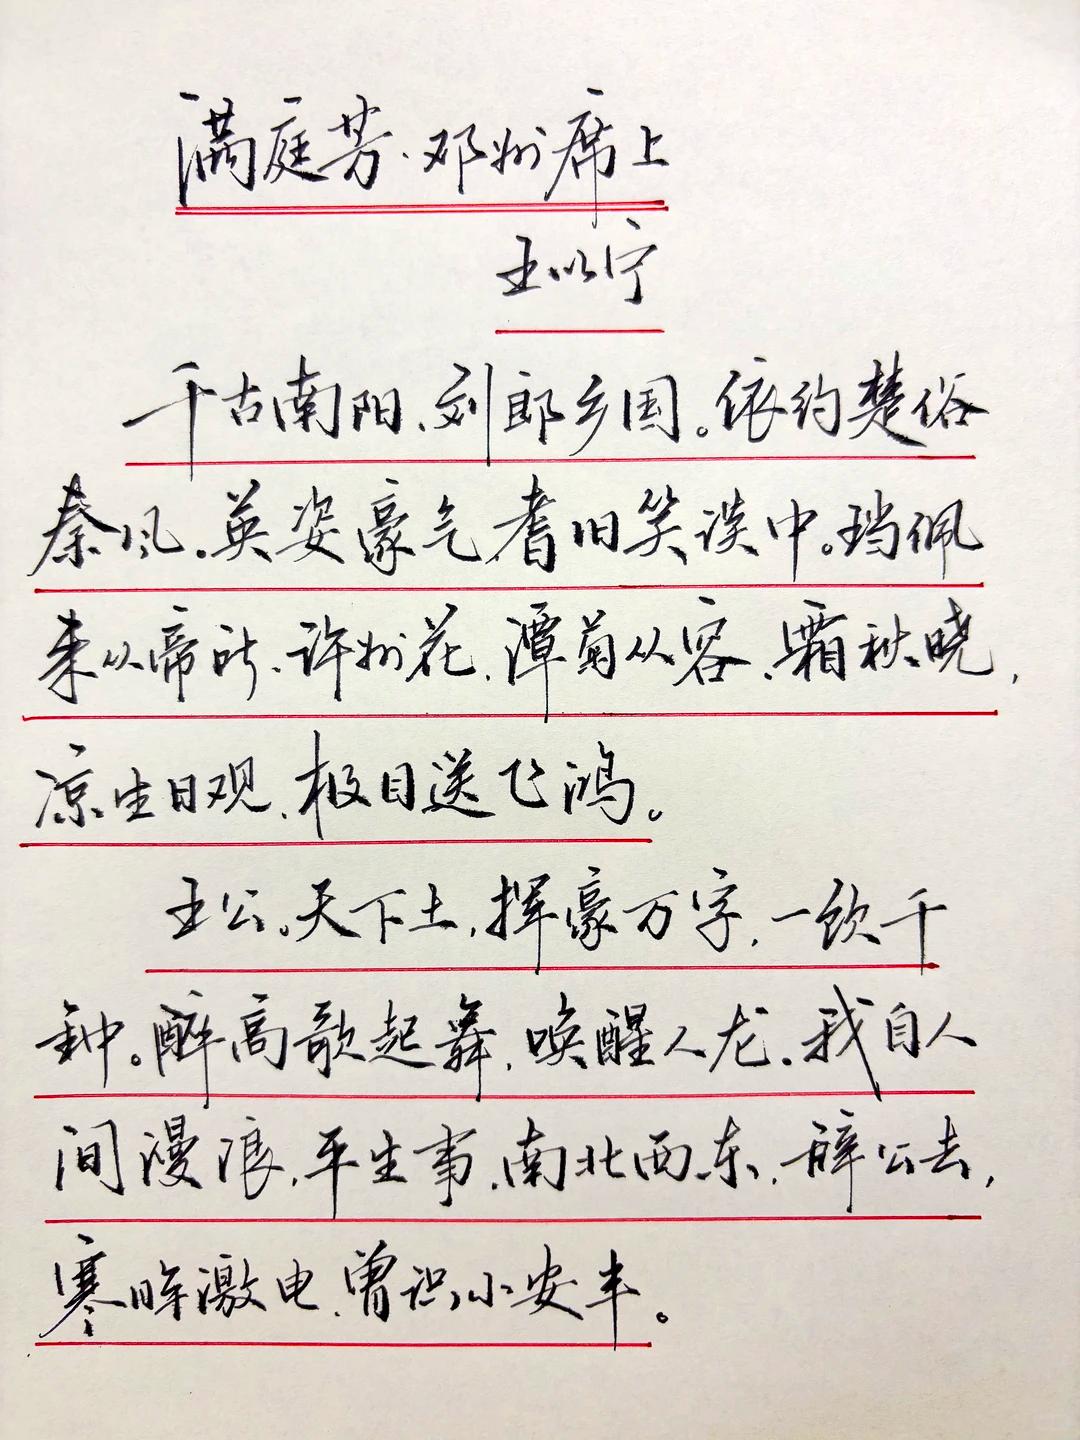 满庭芳·邓州席上
王以宁
千古南阳、刘郎乡国。依约楚俗
秦风。英姿豪气耆旧笑谈中。珰佩
来从帝所、许州花,潭菊从容、霜秋晓,
凉生日观、极目送飞鸿。
王公。天下士,挥豪万字,一饮千
钟。醉高歌起舞,唤醒人龙。我自人
间漫浪,平生事、南北西东、辞公去,
寒眸激电、曾识小安丰。